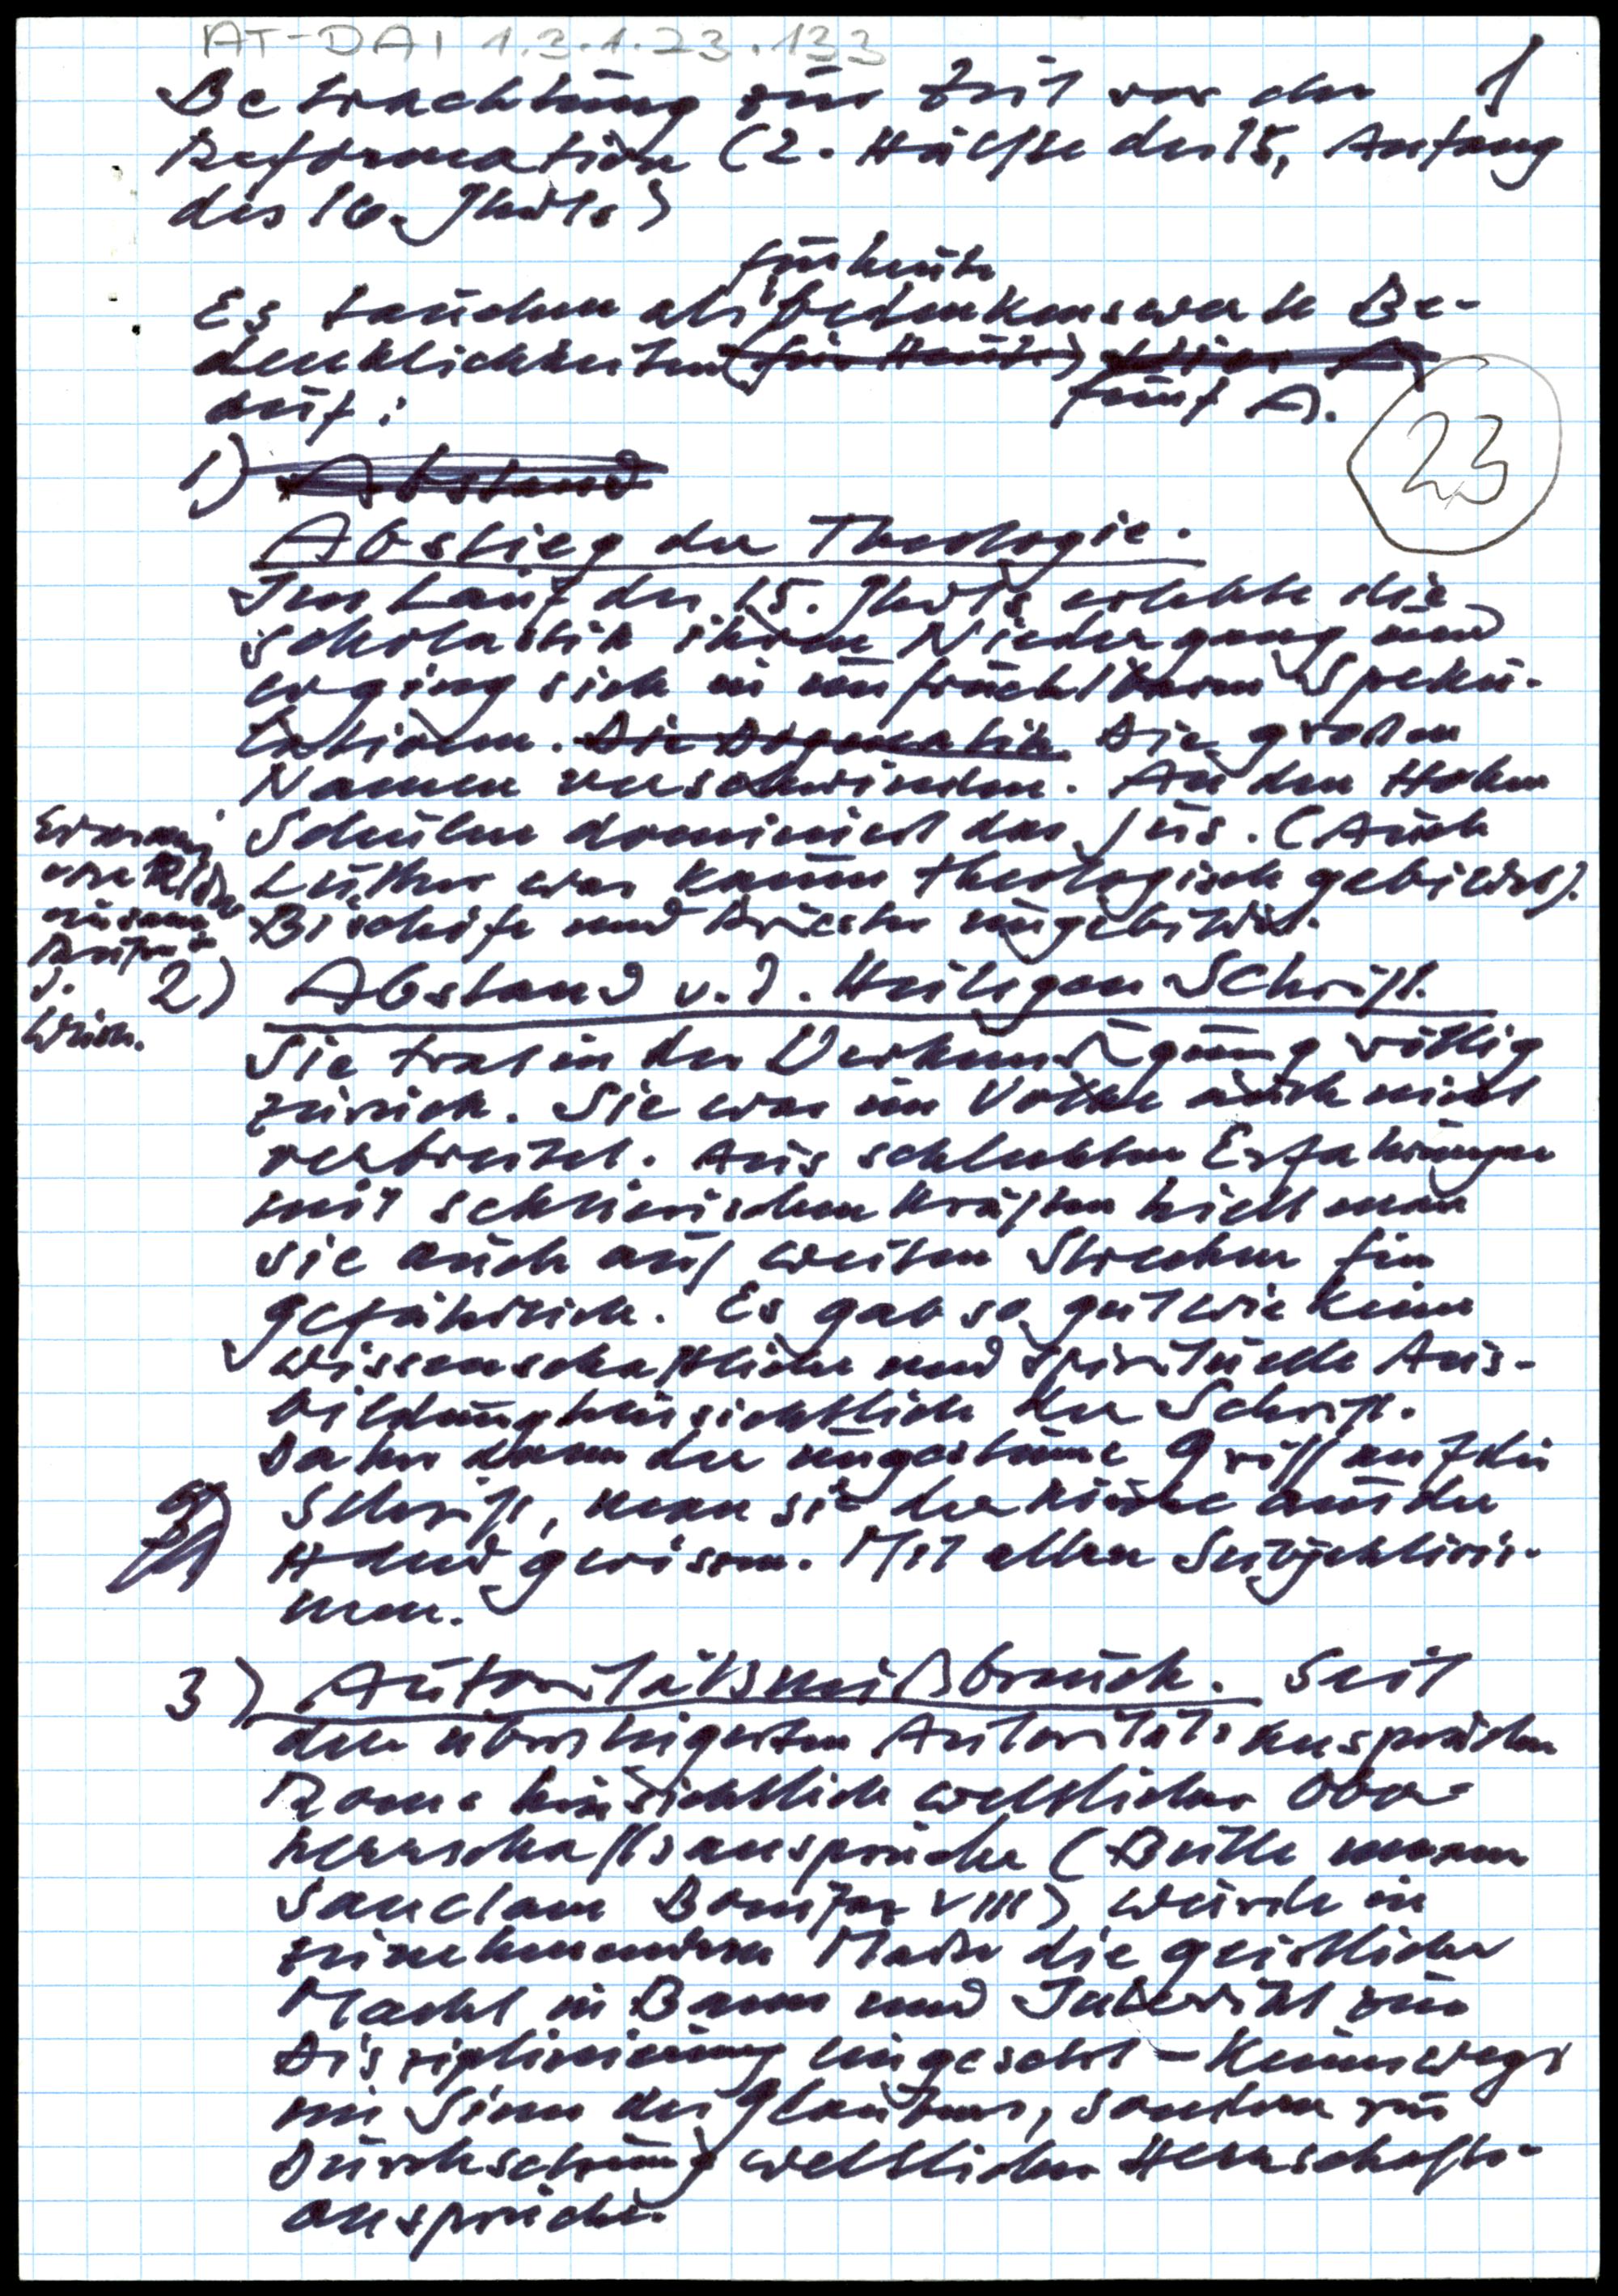 AT-DAI 1.3.1.23.133
1
Betrachtung zur Zeit vor der
Reformation (2. Hälfte des 15, Anfang
des 16. Jhdts)
für heute
Es tauchen als bedenkenswerte Be-
denklichkeiten (für Heute)
auf: fünf A.
23
1) Abstand
Abstieg der Theologie.
Im Lauf des 15. Jhdts erlebte die
Scholastik ihren Niedergang und
erging sich in unfruchtbaren Speku-
lationen. Die Dogmatik Die großen
Namen verschwinden. An den Hohen
Schulen dominiert das Jus. (Auch
Luther war kaum theologisch gebildet).
Bischöfe und Priester ungebildet.
2) Abstand v. d. Heiligen Schrift.
Sie trat in der Verkündigung völlig
zurück. Sie war im Volke auch nicht
verbreitet. Aus schlechten Erfahrungen
mit schwierischen Kräften hielt man
sie auch auf weiten Strecken für
gefährlich. Es gab so gut wie keine
wissenschaftliche und spirituelle Aus-
bildung hinsichtlich der Schrift.
Daher dann der ungestüme Griff auf die
Schrift, man sie der Kirche aus der
Hand gerissen. Mit allen Subjektivis-
men.
3) Autoritätsmißbrauch. Seit
den übersteigerten Autoritätsansprüchen
Roms hinsichtlich weltlicher Ober-
herrschaftsansprüche (Bulle unam
sanctam Bonifaz VIII) wurde in
zunehmendem Maße die geistliche
Macht in Bann und Interdikt zur
Disziplinierung eingesetzt – keineswegs
im Sinn des Glaubens, sondern zur
Durchsetzung weltlicher Herrschafts-
ansprüche.